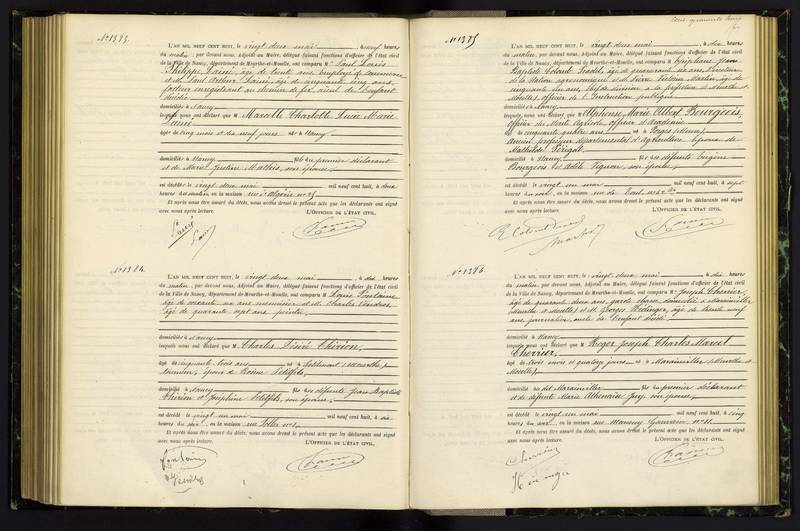 N° 1383.
L'AN MIL NEUF CENT HUIT, le vingt deux mai, à neuf heures
du matin, par devant nous, Adjoint au Maire, délégué faisant fonctions d'officier de l'état civil
de la Ville de Nancy, département de Meurthe-et-Moselle, ont comparu M. Paul Louis
Philippe âgé de trente ans, employé de commerce
et M. Paul Arthur âgé de cinquante cinq ans,
facteur enregistrant au chemin de fer, oncle de l'enfant
décédée
domiciliés à Nancy
lesquels nous ont déclaré que Marcelle Charlotte Lucie Marie
âgée de cinq mois et dix neuf jours née à Nancy
domiciliée à Nancy fille du premier déclarant
et de Marie Justine Mathis, son épouse,
est décédée le vingt deux mai mil neuf cent huit, à deux
heures du matin, en la maison rue
Et après nous être assuré du décès, nous avons dressé le présent acte que les déclarants ont signé
avec nous après lecture.
L'OFFICIER DE L'ÉTAT CIVIL,
N° 1384.
L'AN MIL NEUF CENT HUIT, le vingt deux mai, à dix heures
du matin, par devant nous, Adjoint au Maire, délégué faisant fonctions d'officier de l'état civil
de la Ville de Nancy, département de Meurthe-et-Moselle, ont comparu M. Louis Fontaine
âgé de quarante ans, menuisier et M. Charles
âgé de quarante sept ans, peintre,
domiciliés à Nancy
lesquels nous ont déclaré que Charles Désiré Thirion,
âgé de cinquante trois ans né à
époux de Petitfils,
domicilié à Nancy fils des défunts Jean Baptiste
Thirion et Joséphine Petitfils, son épouse,
est décédé le vingt un mai mil neuf cent huit, à six
heures du soir, en la maison rue
Et après nous être assuré du décès, nous avons dressé le présent acte que les déclarants ont signé
avec nous après lecture.
L'OFFICIER DE L'ÉTAT CIVIL,
N° 1385
L'AN MIL NEUF CENT HUIT, le vingt deux mai, à dix heures
du matin, par devant nous, Adjoint au Maire, délégué faisant fonctions d'officier de l'état civil
de la Ville de Nancy, département de Meurthe-et-Moselle, ont comparu M. Epiphane Jean
Baptiste Colomb Pradel, âgé de quarante six ans, Directeur
de la Station agronomique et M. Pierre Victor Martin, âgé de
cinquante un ans, chef de division à la préfecture de Meurthe et
Moselle, officier de l'Instruction publique
domiciliés à Nancy
lesquels nous ont déclaré que Alphonse Marie Albert Bourgeois,
officier du Mérite Agricole, officier d'académie
âgé de cinquante quatre ans né à Vosges
ancien professeur départemental d'Agriculture époux de
Mathilde Périgal
domicilié à Nancy fils des défunts Eugène
Bourgeois et Adèle son épouse,
est décédé le vingt un mai mil neuf cent huit, à sept
heures du soir, en la maison rue de Toul
Et après nous être assuré du décès, nous avons dressé le présent acte que les déclarants ont signé
avec nous après lecture.
L'OFFICIER DE L'ÉTAT CIVIL,
N° 1386.
L'AN MIL NEUF CENT HUIT, le vingt deux mai, à dix heures
du matin, par devant nous, Adjoint au Maire, délégué faisant fonctions d'officier de l'état civil
de la Ville de Nancy, département de Meurthe-et-Moselle, ont comparu M. Joseph Cherrier,
âgé de quarante deux ans, garde chasse, domicilié à Marainviller
(Meurthe et Moselle) et M. Georges Héninger, âgé de trente neuf
ans, journalier, oncle de l'enfant décédé
domiciliés à Nancy
lesquels nous ont déclaré que Roger Joseph Charles Marcel
Cherrier,
âgé de trois mois et quatorze jours né à Marainviller (Meurthe et
Moselle),
domicilié au dit Marainviller fils du premier déclarant
et de défunte Marie son épouse,
est décédé le vingt un mai mil neuf cent huit, à cinq
heures du soir, en la maison rue
Et après nous être assuré du décès, nous avons dressé le présent acte que les déclarants ont signé
avec nous après lecture.
L'OFFICIER DE L'ÉTAT CIVIL,